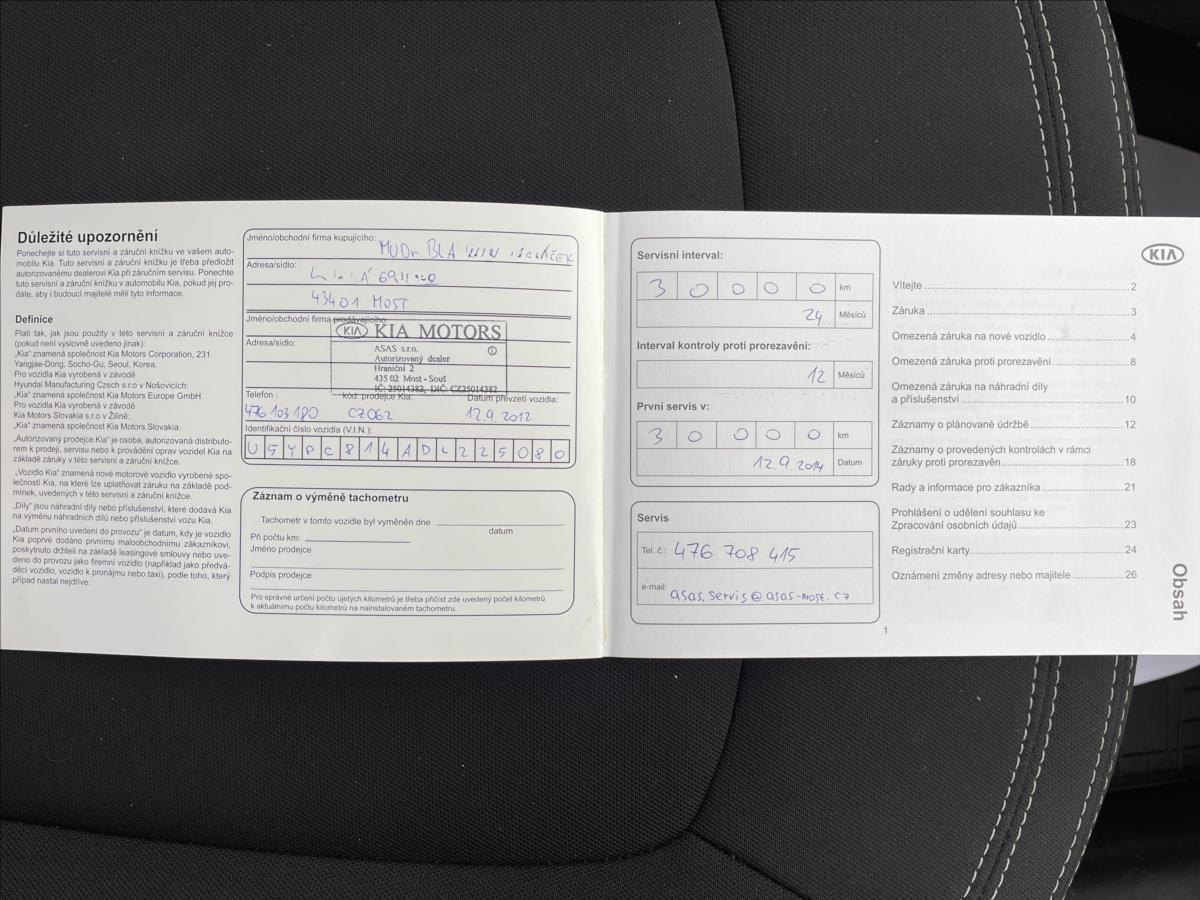 Důležité upozornění
Ponechejte si tuto servisní a záruční knížku ve vašem auto-
mobilu Kia. Tuto servisní a záruční knížku je třeba předložit
autorizovanému dealerovi Kia při záručním servisu. Ponechte
tuto servisní a záruční knížku v automobilu Kia, pokud jej pro-
dáte, aby i budoucí majitelé měli tyto informace.
Definice
Platí tak, jak jsou použity v této servisní a záruční knížce
(pokud není výslovně uvedeno jinak):
„Kia“ znamená společnost Kia Motors Corporation, 231
Yangjae-Dong, Socho-Gu, Seoul, Korea.
Pro vozidla Kia vyrobená v závodě
Hyundai Manufacturing Czech s.r.o v Nošovicích:
„Kia“ znamená společnost Kia Motors Europe GmbH.
Pro vozidla Kia vyrobená v závodě
Kia Motors Slovakia s.r.o v Žilině:
„Kia“ znamená společnost Kia Motors Slovakia.
„Autorizovaný prodejce Kia“ je osoba, autorizovaná distributo-
rem k prodeji, servisu nebo k provádění oprav vozidel Kia na
základě záruky v této servisní a záruční knížce.
„Vozidlo Kia“ znamená nové motorové vozidlo vyrobené spo-
lečností Kia, na které lze uplatňovat záruku na základě pod-
mínek, uvedených v této servisní a záruční knížce.
„Díly“ jsou náhradní díly nebo příslušenství, které dodává Kia
na výměnu náhradních dílů nebo příslušenství vozu Kia.
„Datum prvního uvedení do provozu“ je datum, kdy je vozidlo
Kia poprvé dodáno prvnímu maloobchodnímu zákazníkovi,
poskytnuto držiteli na základě leasingové smlouvy nebo uve-
deno do provozu jako firemní vozidlo (například jako předvá-
děcí vozidlo, vozidlo k pronájmu nebo taxi), podle toho, který
případ nastal nejdříve.
Jméno/obchodní firma kupujícího: MUDr.
Adresa/sídlo:
43401 MOST
Jméno/obchodní firma prodávajícího:
KIA KIA MOTORS
Adresa/sídlo:
ASAS s.r.o.
Autorizovaný dealer
Hraniční 2
435 02 Most - Souš
IČ: 25014382, DIČ: CZ25014382
Telefon : kód prodejce Kia: Datum převzetí vozidla:
476 103 180 CZ062 12.9.2012
Identifikační číslo vozidla (V.I.N.):
U5YPC814ADL225080
Záznam o výměně tachometru
Tachometr v tomto vozidle byl vyměněn dne
datum
Při počtu km:
Jméno prodejce
Podpis prodejce
Pro správné určení počtu ujetých kilometrů je třeba přičíst zde uvedený počet kilometrů
k aktuálnímu počtu kilometrů na nainstalovaném tachometru.
Servisní interval:
30000 km
24 Měsíců
Interval kontroly proti prorezavění:
12 Měsíců
První servis v:
30000 km
12.9.2014 Datum
Servis
Tel. č.: 476 708 415
e-mail: asas.servis@asas-most.cz
KIA
Vítejte 2
Záruka 3
Omezená záruka na nové vozidlo 4
Omezená záruka proti prorezavění 8
Omezená záruka na náhradní díly
a příslušenství 10
Záznamy o plánované údržbě 12
Záznamy o provedených kontrolách v rámci
záruky proti prorezavěn 18
Rady a informace pro zákazníka 21
Prohlášení o udělení souhlasu ke
Zpracování osobních údajů 23
Registrační karty 24
Oznámení změny adresy nebo majitele 26
Obsah
1